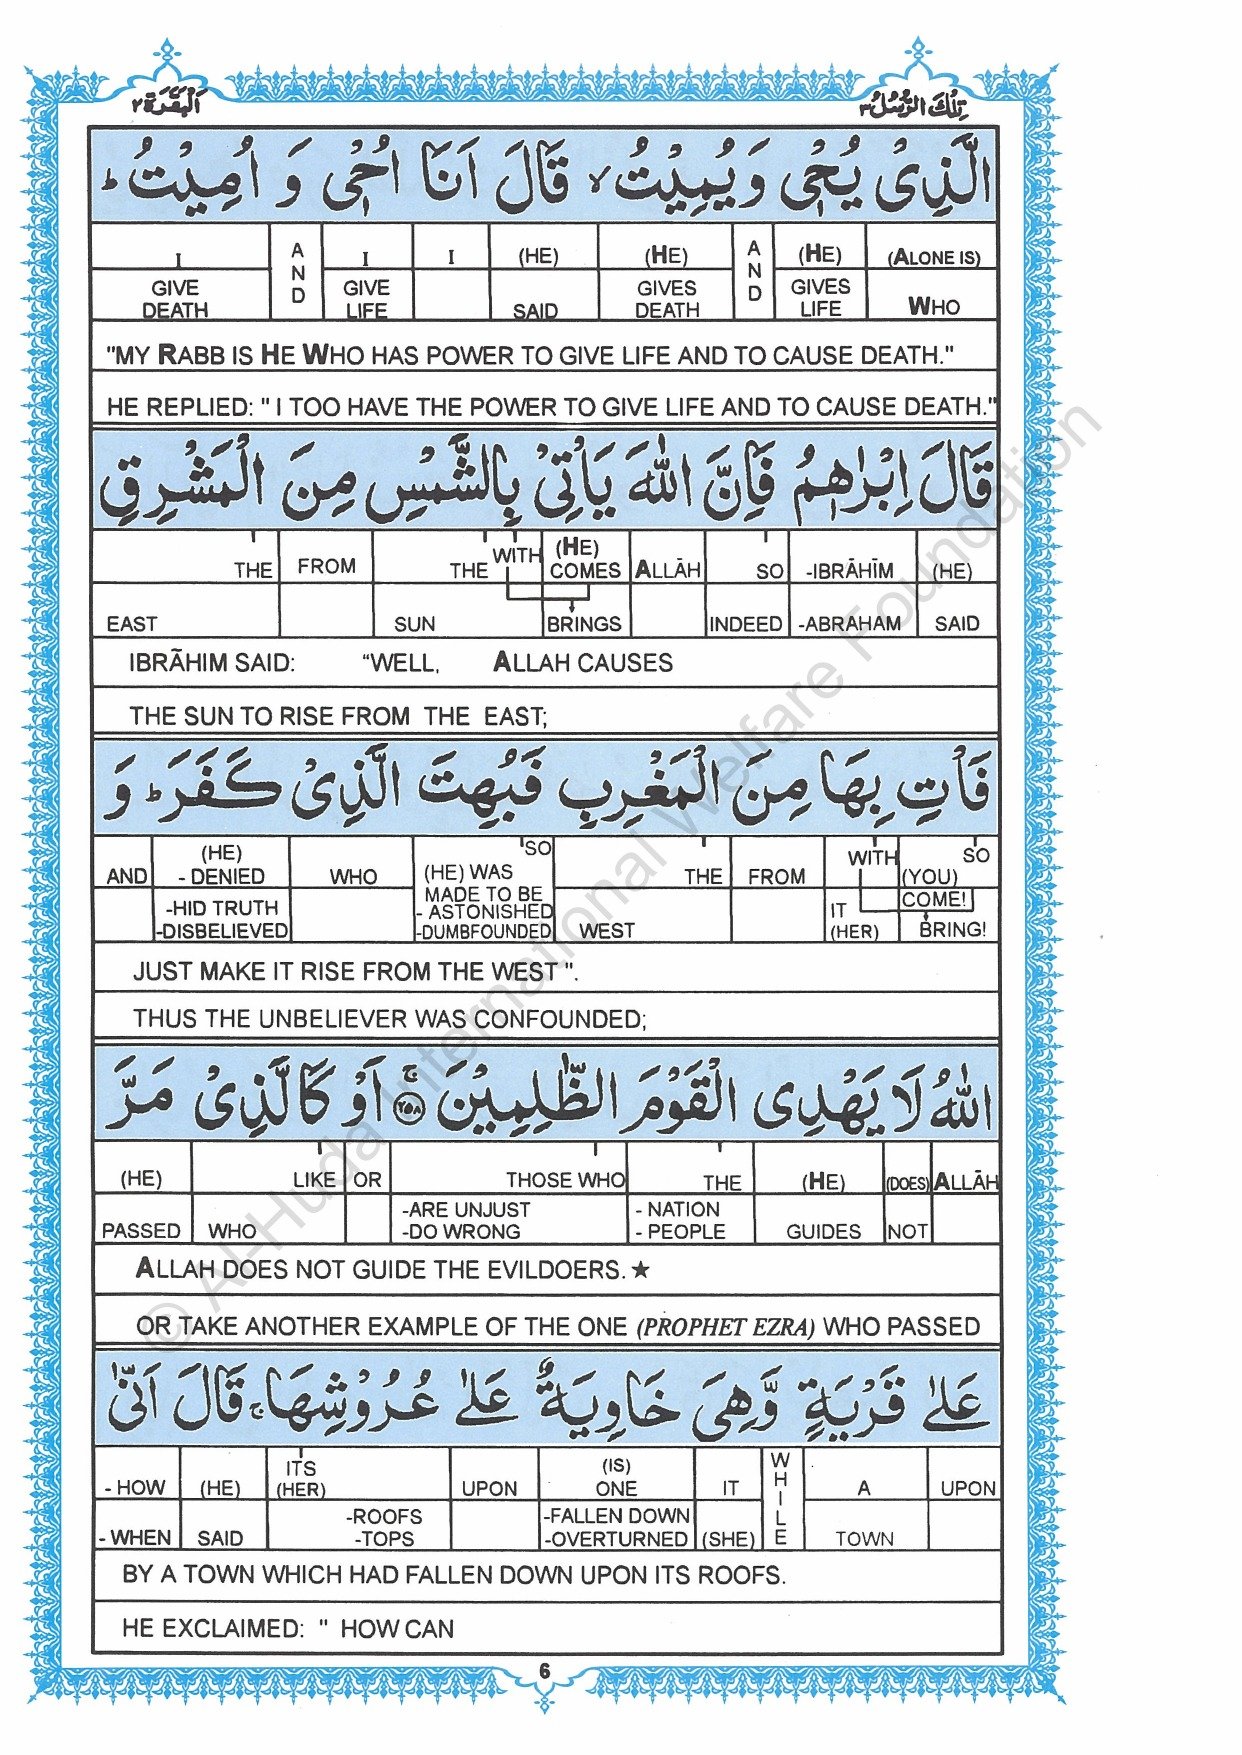 اَلْبَقَرَة ٢ تِلْكَ الرُّسُلُ ٣
الَّذِىْ يُحْىٖ وَيُمِيْتُ ۙ قَالَ اَنَا اُحْىٖ وَ اُمِيْتُ ؕ
I A I I (HE) (HE) A (HE) (ALONE IS)
GIVE DEATH N D GIVE LIFE SAID GIVES DEATH N D GIVES LIFE WHO
"MY RABB IS HE WHO HAS POWER TO GIVE LIFE AND TO CAUSE DEATH."
HE REPLIED: " I TOO HAVE THE POWER TO GIVE LIFE AND TO CAUSE DEATH."
قَالَ اِبْرٰهٖمُ فَاِنَّ اللّٰهَ يَاْتِىْ بِالشَّمْسِ مِنَ الْمَشْرِقِ
THE FROM THE WITH (HE) COMES ALLĀH SO -IBRĀHĪM (HE)
EAST SUN BRINGS INDEED -ABRAHAM SAID
IBRĀHIM SAID: “WELL, ALLAH CAUSES
THE SUN TO RISE FROM THE EAST;
فَاْتِ بِهَا مِنَ الْمَغْرِبِ فَبُهِتَ الَّذِىْ كَفَرَ ؕ وَ
AND (HE) - DENIED WHO 'SO (HE) WAS THE FROM WITH SO (YOU)
-HID TRUTH -DISBELIEVED MADE TO BE - ASTONISHED -DUMBFOUNDED WEST IT (HER) COME! BRING!
JUST MAKE IT RISE FROM THE WEST ".
THUS THE UNBELIEVER WAS CONFOUNDED;
اللّٰهُ لَا يَهْدِى الْقَوْمَ الظّٰلِمِيْنَ ۚ ٢٥٨ اَوْ كَالَّذِىْ مَرَّ
(HE) LIKE OR THOSE WHO THE (HE) (DOES) ALLĀH
PASSED WHO -ARE UNJUST -DO WRONG - NATION - PEOPLE GUIDES NOT
ALLAH DOES NOT GUIDE THE EVILDOERS. ★
OR TAKE ANOTHER EXAMPLE OF THE ONE (PROPHET EZRA) WHO PASSED
عَلٰى قَرْيَةٍ وَّهِىَ خَاوِيَةٌ عَلٰى عُرُوْشِهَا ۚ قَالَ اَنّٰى
- HOW (HE) ITS (HER) UPON (IS) ONE IT WHILE A UPON
- WHEN SAID -ROOFS -TOPS -FALLEN DOWN -OVERTURNED (SHE) TOWN
BY A TOWN WHICH HAD FALLEN DOWN UPON ITS ROOFS.
HE EXCLAIMED: " HOW CAN
6
© Al-Huda International Welfare Foundation